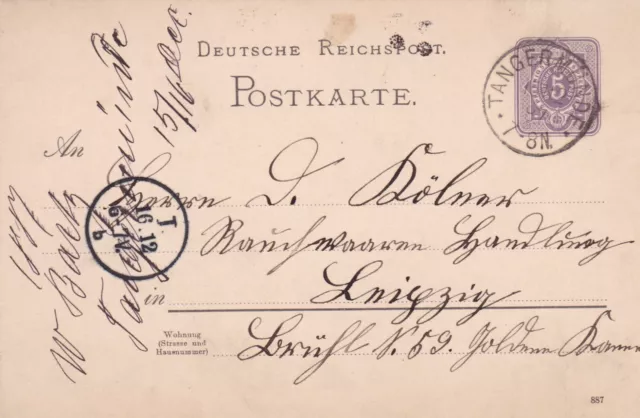 DEUTSCHE REICHSPOST.
POSTKARTE.
5
TANGERMÜNDE
7-8N.
An
Herrn D. Kölner
Rauchwaaren Handlung
in Leipzig
Wohnung
(Strasse und
Hausnummer)
Brühl N. 59. Goldene Kanne
887
Tangermünde 15/16 Dec.
1887
W
I
16 12
6-7 V.
b